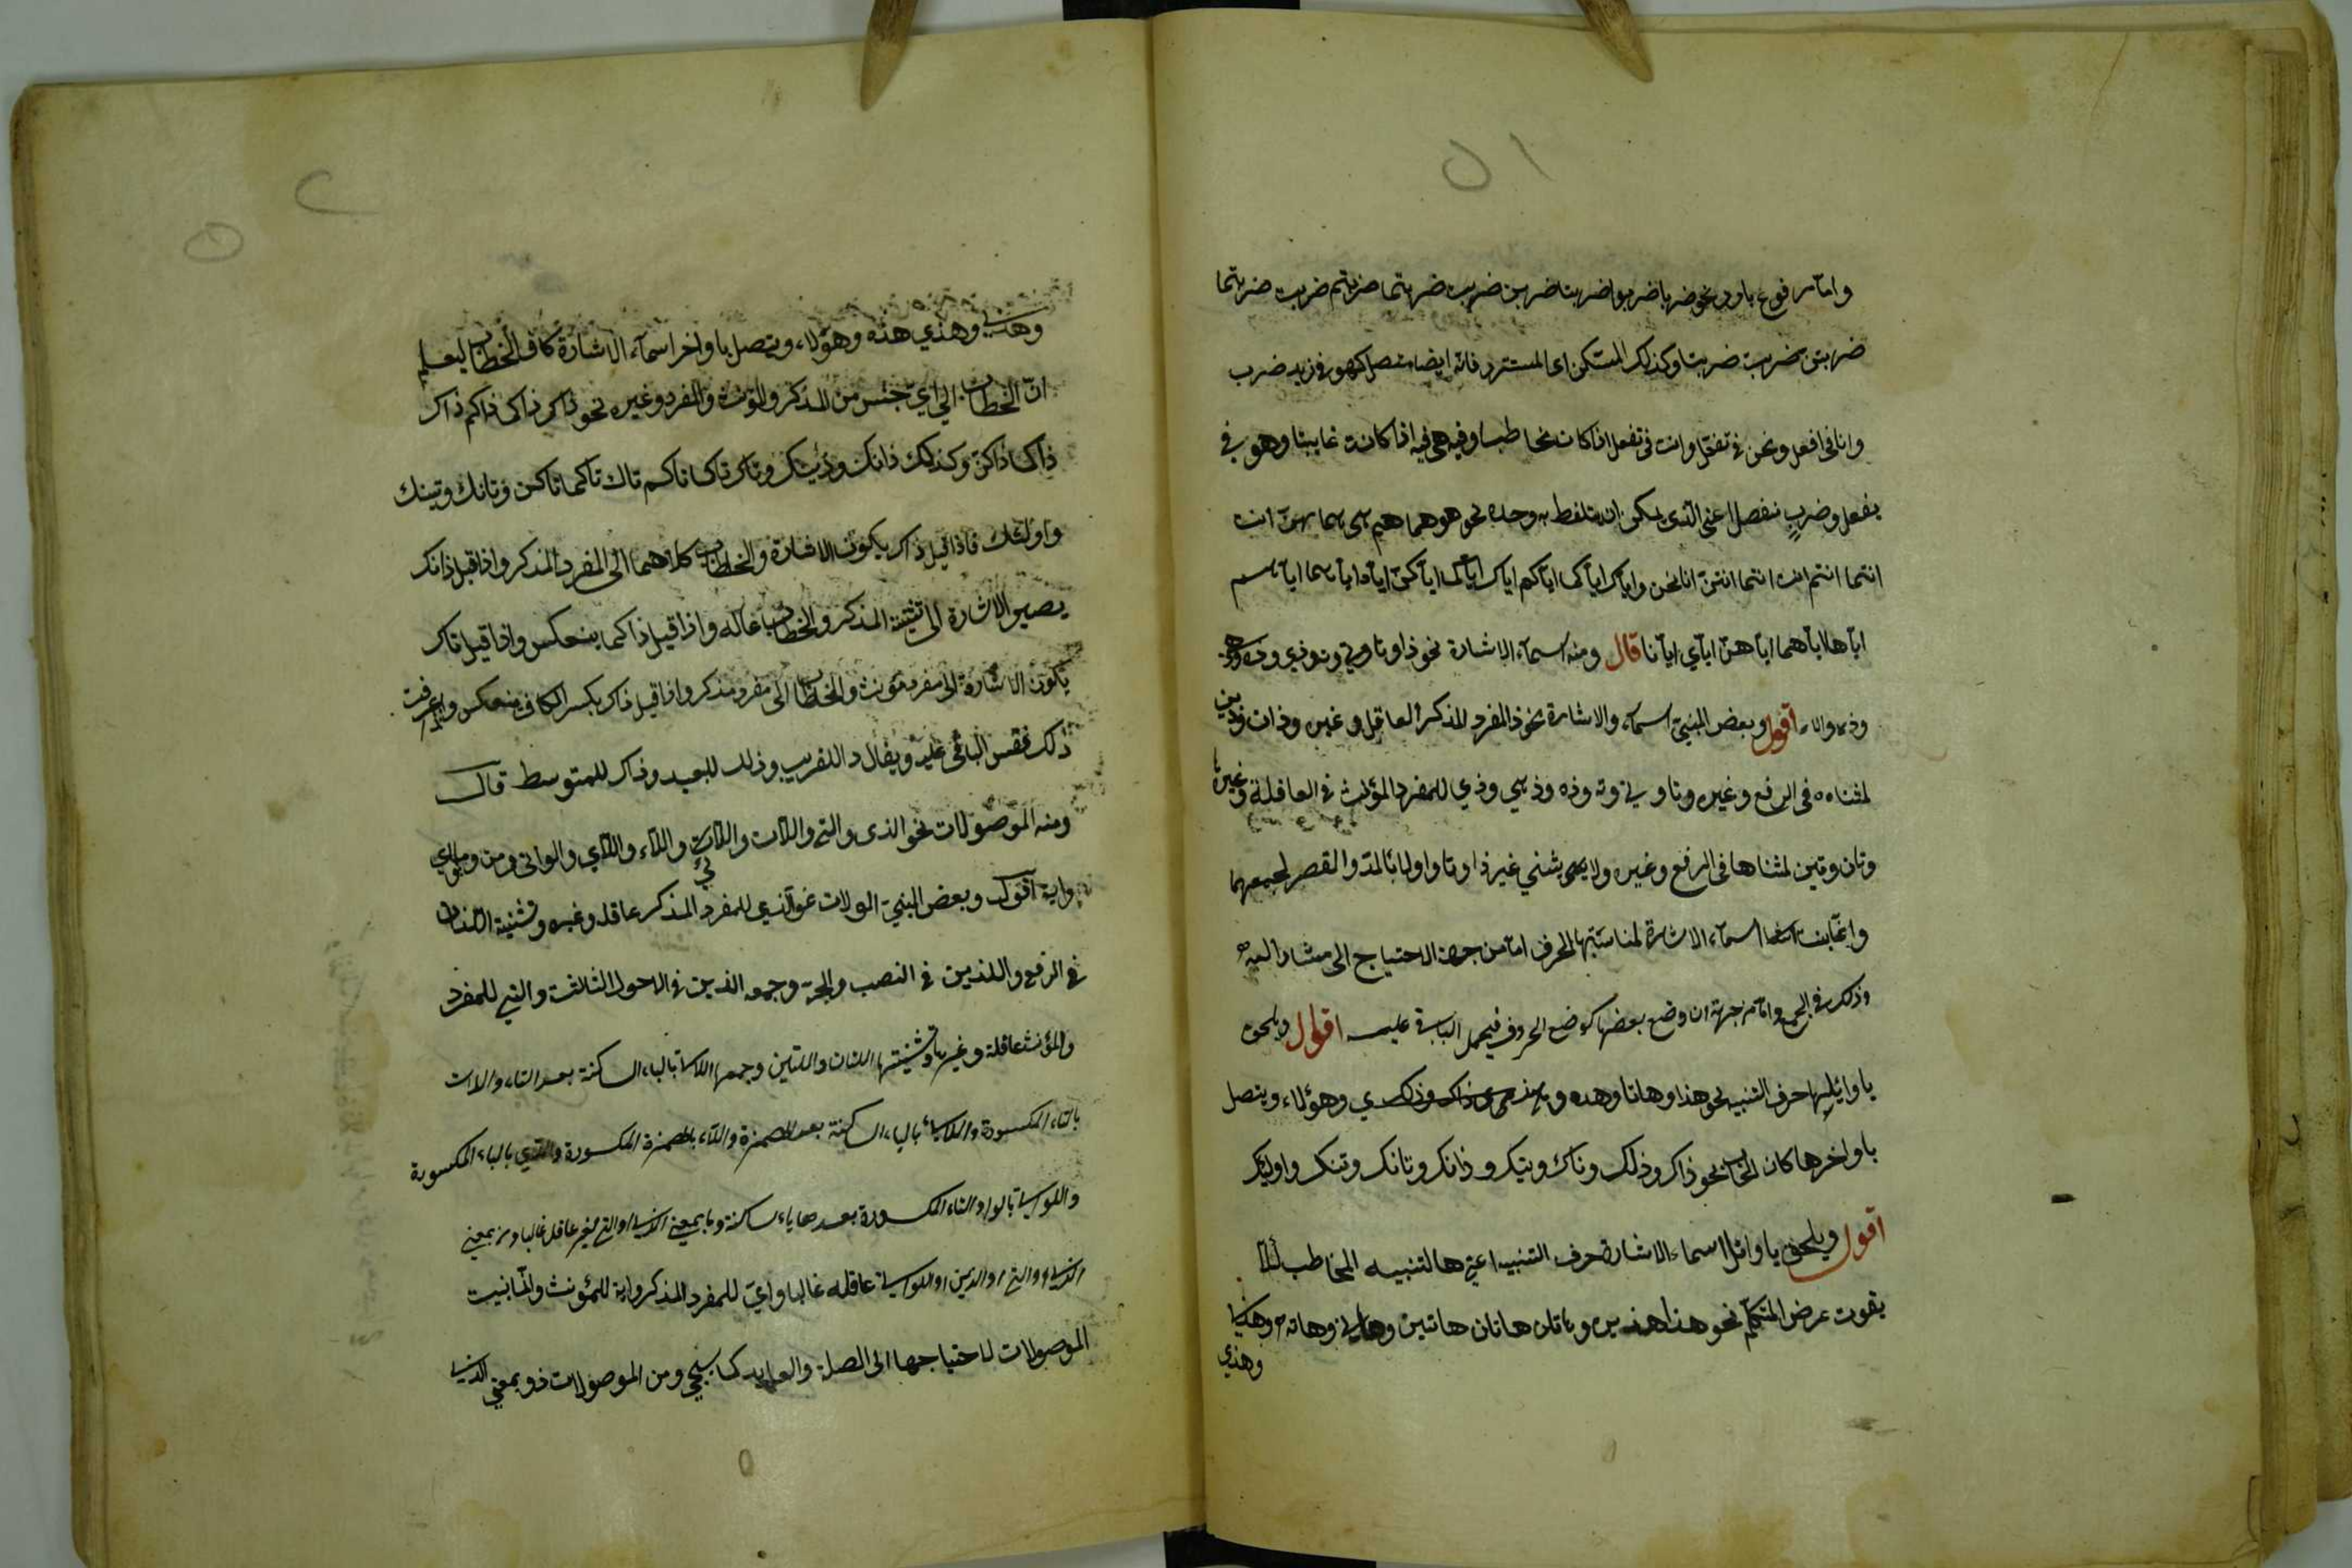 وامّا مرفوع بارز نحو ضربا ضربوا ضربت ضربن ضربت ضربتما ضربتم ضربت ضربتما
ضربتن ضربت ضربنا وكذلك المستكن اى المستتر فانّه ايضا متصل كهو فى زيد ضرب
وانا فى افعل ونحن فى نفعل وانت فى تفعل اذا كان مخاطبا وفيه هى فيه اذا كانت غايبتا وهو فى
يفعل وضربٍ منفصل اعنى الّذى يمكن ان يتلفط به وحده نحو هو هما هم هى هما هنّ انت
انتما انتم انت انتما انتنّ انا نحن واياك اياكما اياكم اياك اياكما اياكنّ اياه اياهما اياهم
اياها اياهما اياهنّ اياي ايانا قال ومنه اسمآء الاشارة نحو ذا وتا وتى وته وذى وذه
وذه والاء اقول وبعض المبنيّ اسماء والاشارة نحو ذا المفرد للمذكر العاقل وغيره وذان وذين
لمثناه فى الرفع وغيره وتا وتى وته وذه وذهي وذي للمفرد المؤنث فى العاقلة وغيرها
وتان وتين لمثناها فى الرفع وغيره ولا يثنى غير ذا وتا واولا بالمدّ والقصر لجمعهما
وانمّا بنيت اسمآء الاشارة لمناسبتها الحرف امّا من جهة الاحتياج الى مشار اليه
وذلك فى الجمع وامّا من جهة ان وضع بعضها كوضع الحروف فيحمل الباقى عليه اقول ويلحق
باوائلها حرف التنبيه نحو هذا وهاتا وهذه وهذي وهؤلاء ويتصل
باواخرها كاف الخطاب نحو ذاك وذلك وتاك وتيك وذانك وتانك وتينك واولئك
اقول ويلحق باوائل اسماء الاشارة حرف التنبيه اعنى ها لتنبيه المخاطب لئلّا
يفوت غرض المتكلّم نحو هذا هذان هذين وهاتا هاتان هاتين وهاتى وهاته وهذه
وهذي
وهذهي وهذي هذه وهؤلاء ويتصل باواخر اسمآء الاشارة كاف الخطاب ليعلم
انّ الخطاب الى ايّ جنس من المذكر والمؤنث والمفرد وغيره نحو ذاك ذاكما ذاكم ذاك
ذاكما ذاكنّ وكذلك ذانك وذينك وتاك تاكما تاكم تاك تاكما تاكن وتانك وتينك
واولئك فاذا قيل ذاك يكون الاشارة والخطاب كلاهما الى المفرد المذكر واذا قيل ذانك
يصير الاشارة الى تثنية المذكر والخطاب بحاله واذا قيل ذاكما ينعكس واذا قيل تاك
يكون الاشارة الى مفرد مؤنث والخطاب الى مفرد مذكر واذا قيل ذاك بكسر الكاف ينعكس واذا عرفت
ذلك فقس الباقى عليه ويقال ذا للقريب وذلك للبعيد وذاك للمتوسط قال
ومنه الموصولات نحو الذى والتى واللات واللاتى واللاء واللاي واللواتى ومن وما واي
واية اقول وبعض المبنيّ الموصولات نحو الّذي للمفرد المذكر عاقله وغيره وتثنية اللذان
فى الرفع واللذين فى النصب والجرّ وجمعه الذين فى الاحوال الثلاث والتى للمفرد
والمؤنث عاقلة وغيرها وتثنيتها اللتان واللتين وجمعها اللاتى بالياء الساكنة بعد التاء واللات
بالتاء المكسورة واللائى بالياء الساكنة بعد الهمزة واللاء بالهمزة المكسورة واللاي بالياء المكسورة
واللواتى بالواو والتاء المكسورة بعدها ياء ساكنة وما بمعنى الّذي او التى لغير عاقل غالبا ومن بمعنى
الذي او التى او الذين او اللواتى عاقله غالبا وايّ للمفرد المذكر واية للمؤنث وانّما بنيت
الموصولات لاحتياجها الى الصلة والعايد كما سيجيء ومن الموصولات ذو بمعنى الّذي